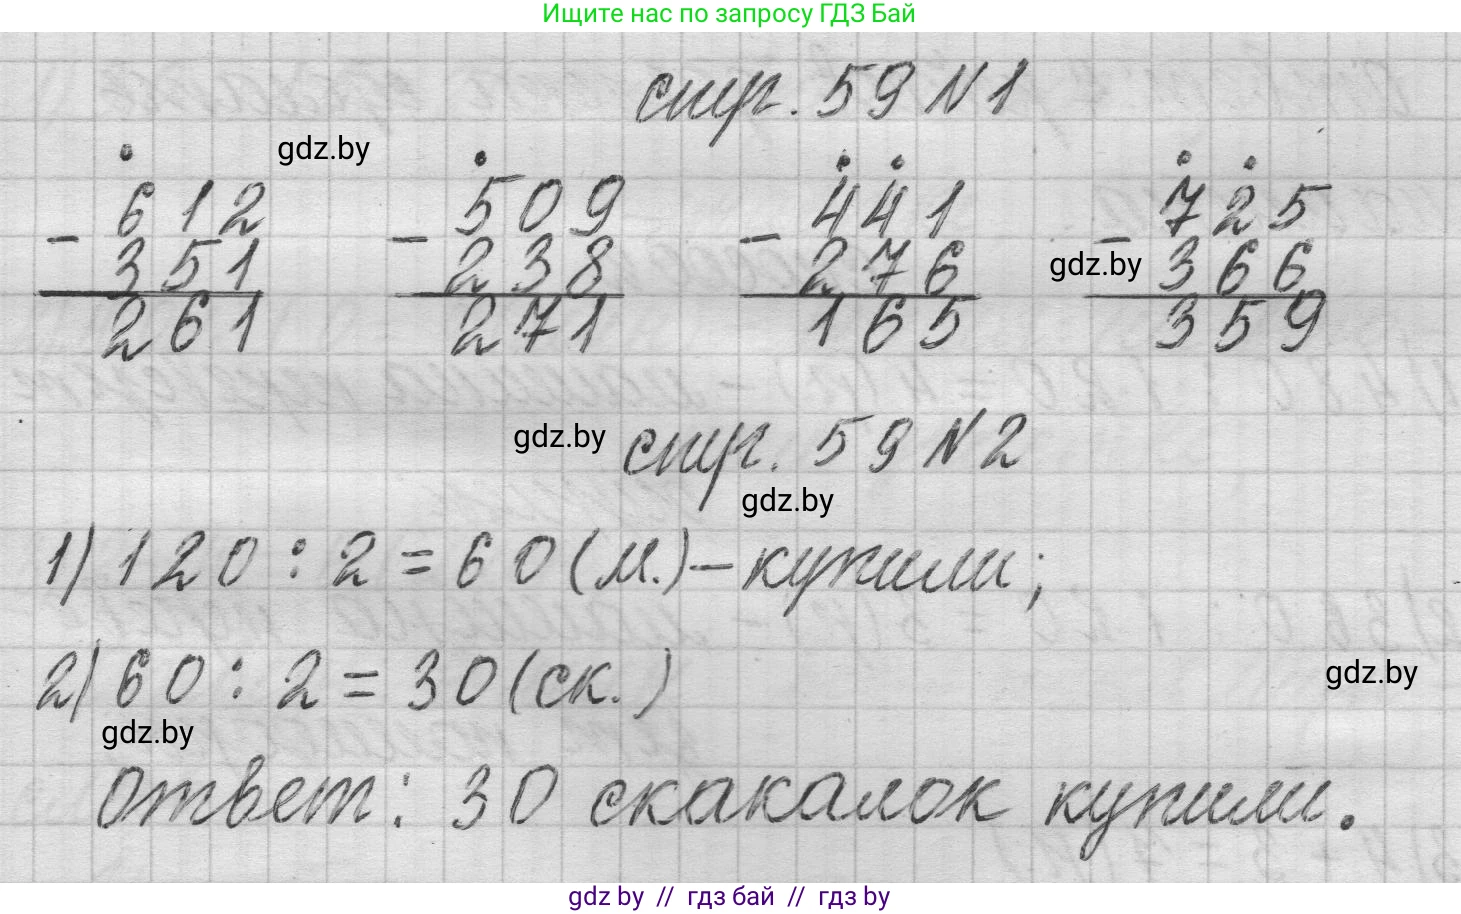 Ищите нас по запросу ГДЗ Бай
стр. 59 N 1
gdz.by
- 612 - 509 - 441 - 725
351 238 276 gdz.by 366
261 271 165 359
gdz.by стр. 59 N 2
gdz.by
1) 120 : 2 = 60 (м.) – купили;
2) 60 : 2 = 30 (ск.)
gdz.by
gdz.by
ответ: 30 скакалок купили.
gdz by // гдз бай // гдз by